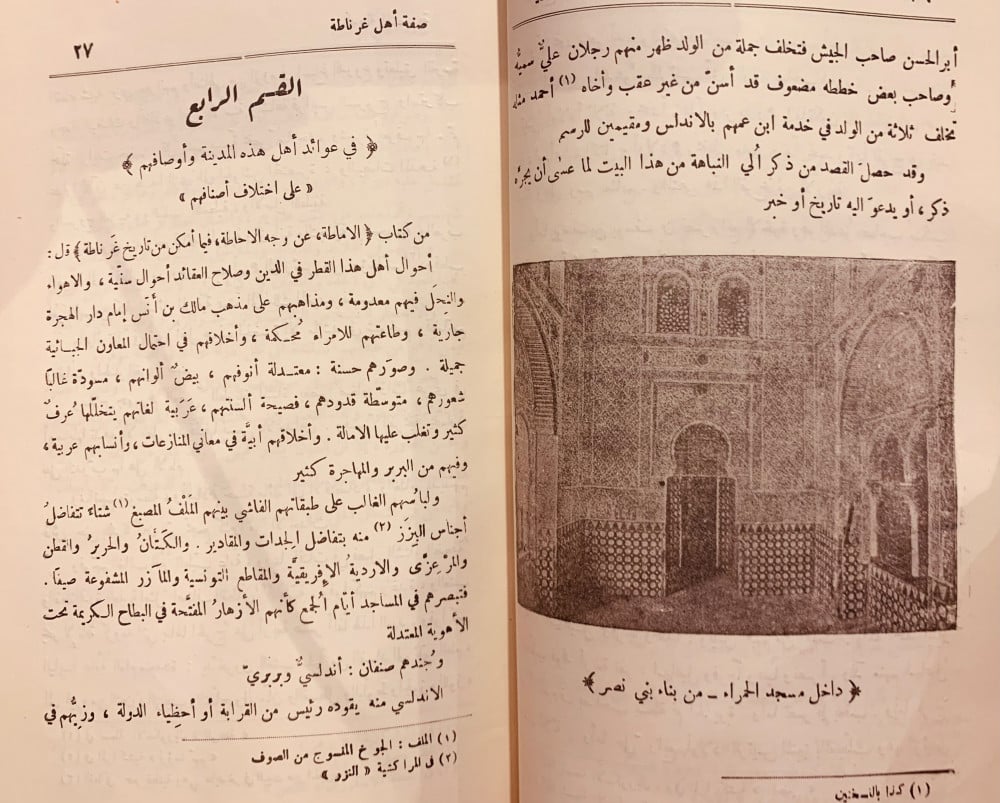 أبو الحسن صاحب الجيش فتخلف جملة من الولد ظهر منهم رجلان عليٌّ سميهُ
وصاحب بعض خططه مضعوف قد أسنّ من غير عقب وأخاه (١) أحمد مثله
تخلف ثلاثة من الولد في خدمة ابن عمهم بالاندلس ومقيمين للرسم
وقد حصلَ القصد من ذكر أُلي النباهة من هذا البيت لما عسى أن يجرَّه
ذكر ، أو يدعوَ اليه تاريخ أو خبر
﴿ داخل مسجد الحمراء ــ من بناء بني نصر ﴾
(١) كذا بالنسختين
صفة أهل غرناطة
٢٧
القسم الرابع
﴿ في عوائد أهل هذه المدينة وأوصافهم ﴾
« على اختلاف أصنافهم »
من كتاب ﴿ الاماطة، عن وجه الاحاطة، فيما أمكن من تاريخ غَرناطة ﴾ قال :
أحوال أهل هذا القطر في الدين وصلاح العقائد أحوال سنّية ، والاهواء
والنِحَل فيهم معدومة ، ومذاهبهم على مذهب مالك بن أَنَس إمام دار الهجرة
جارية ، وطاعتهم للامراء مُحكمة ، وأخلاقهم في احتمال المعاون الجبائية
جميلة . وصوَرهم حسنة : معتدلة أنوفهم ، بيضٌ ألوانهم ، مسودّة غالبًا
شعورهم ، متوسّطة قدودهم ، فصيحة ألسنتهم ، عَرَبية لغاتهم يتخلّلها عُرفٌ
كثير وتغلب عليها الامالة . وأخلاقهم أبيَّة في معاني المنازعات ، وأنسابهم عربية ،
وفيهم من البربر والمهاجرة كثير
ولباسُهم الغالب على طبقاتهم الفاشي بينهم المَلْفُ المصبغ (١) شتاءً تتفاضلُ
أجناس البِزَز (٢) منه بتفاضل الجدات والمقادير . والكَتَّانُ والحريرُ والقطن
والمرْعِزَّى والاردية الإِفريقيَّة والمقاطع التونسية والمآزر المشفوعة صيفًا .
فتبصرهم في المساجد أيّام الجُمع كأنهم الأزهارُ المفتَّحة في البطاح الكريمة تحت
الأهوية المعتدلة
وجُندهم صنفان : أندلسيٌّ وبربريّ
الاندلسي منه يقوده رئيس من القرابة أو أحظِياء الدولة ، وزِيُّهم في
(١) الملف : الجوخ المنسوج من الصوف
(٢) في المراكشية « النزر »